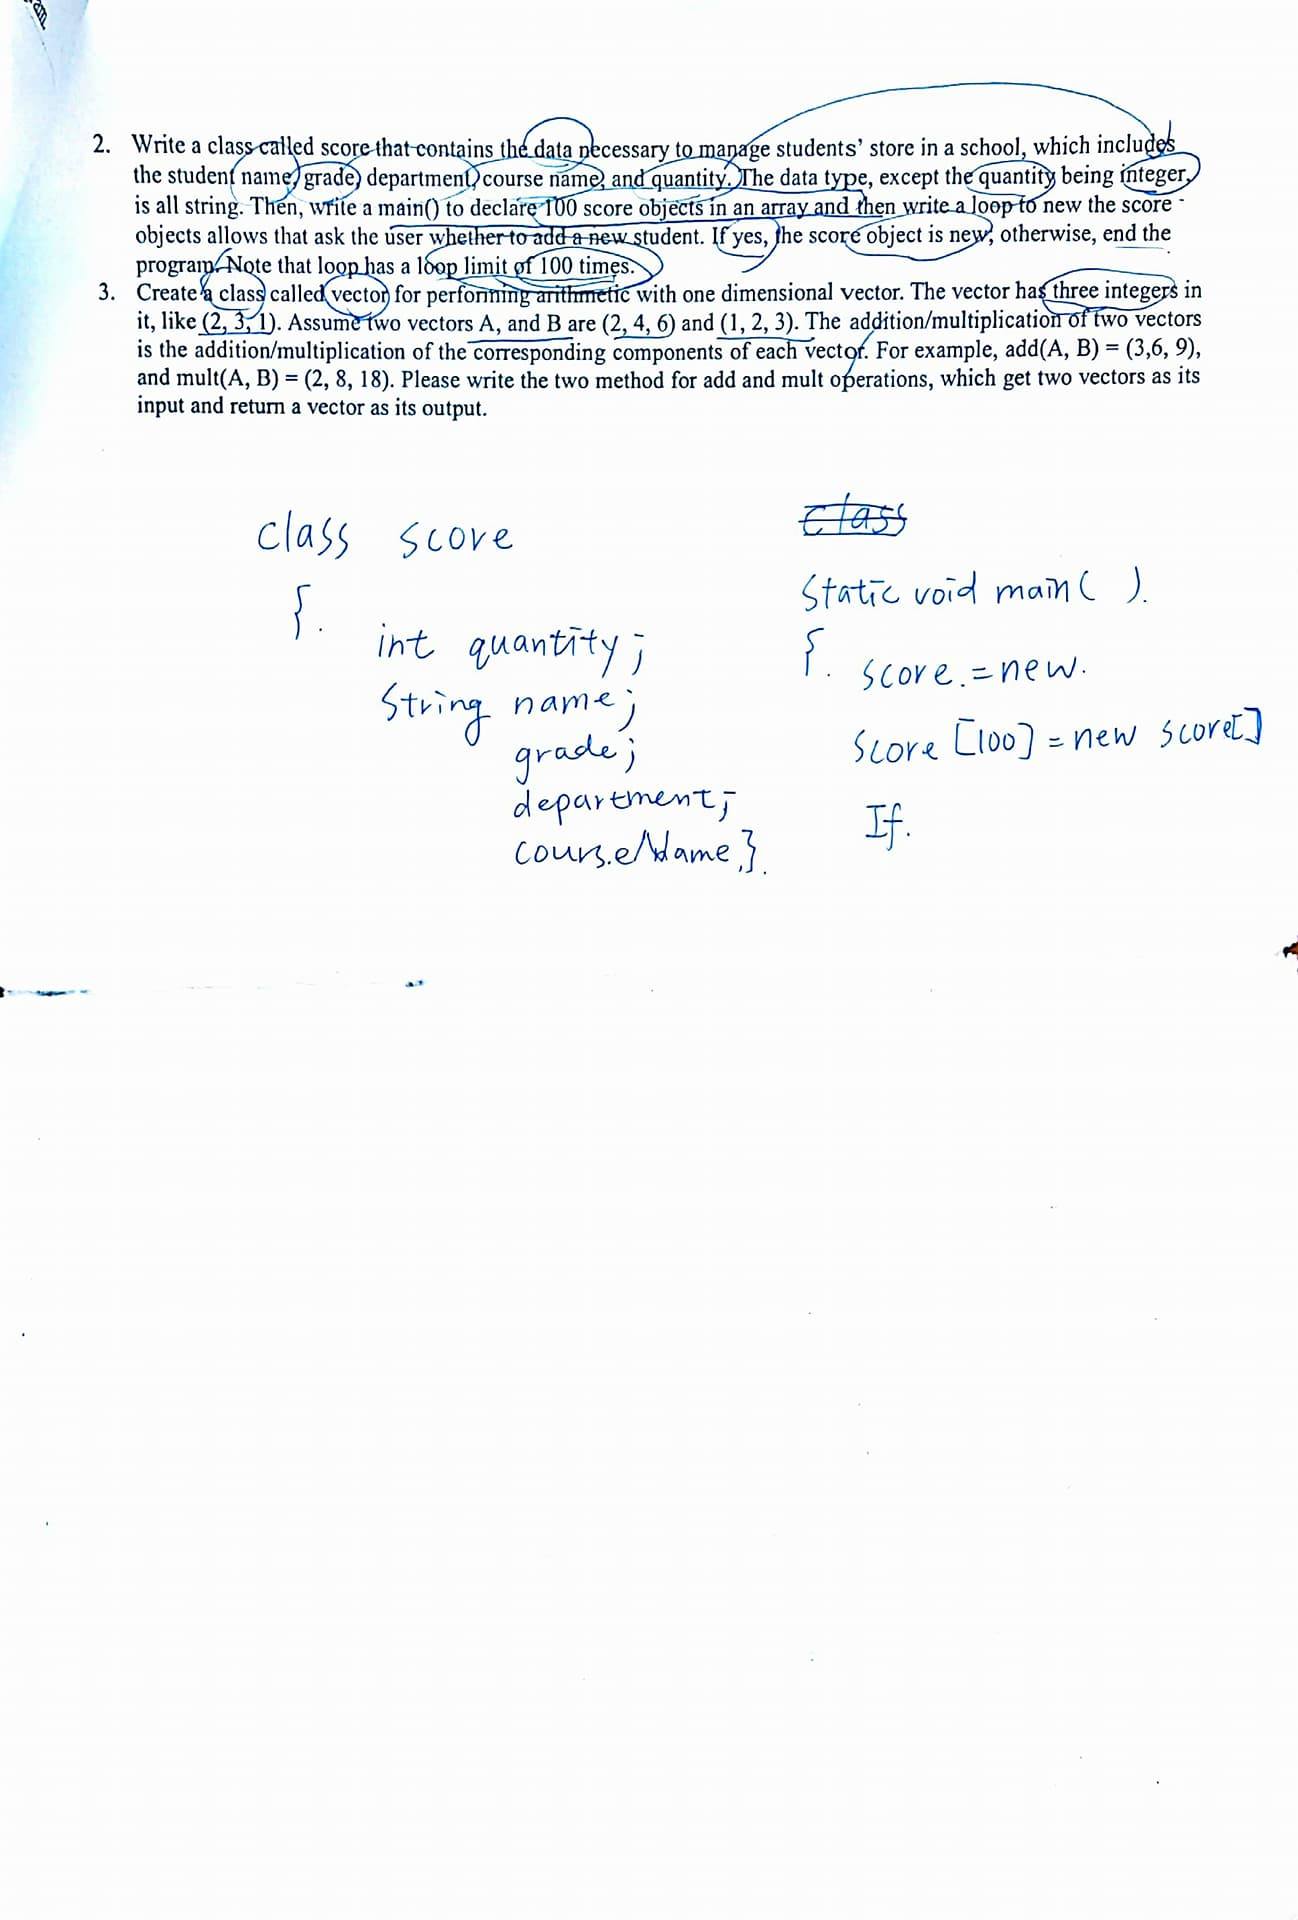 2. Write a class called score that contains the data necessary to manage students’ store in a school, which includes
the student name, grade, department, course name, and quantity. The data type, except the quantity being integer,
is all string. Then, write a main() to declare 100 score objects in an array and then write a loop to new the score
objects allows that ask the user whether to add a new student. If yes, the score object is new, otherwise, end the
program. Note that loop has a loop limit of 100 times.
3. Create a class called vector for performing arithmetic with one dimensional vector. The vector has three integers in
it, like (2, 3, 1). Assume two vectors A, and B are (2, 4, 6) and (1, 2, 3). The addition/multiplication of two vectors
is the addition/multiplication of the corresponding components of each vector. For example, add(A, B) = (3,6, 9),
and mult(A, B) = (2, 8, 18). Please write the two method for add and mult operations, which get two vectors as its
input and return a vector as its output.
class score
{.
int quantity;
String name;
grade;
department;
courseName;}.
class
Static void main( ).
{. score.=new.
Score [100] = new score[]
If.